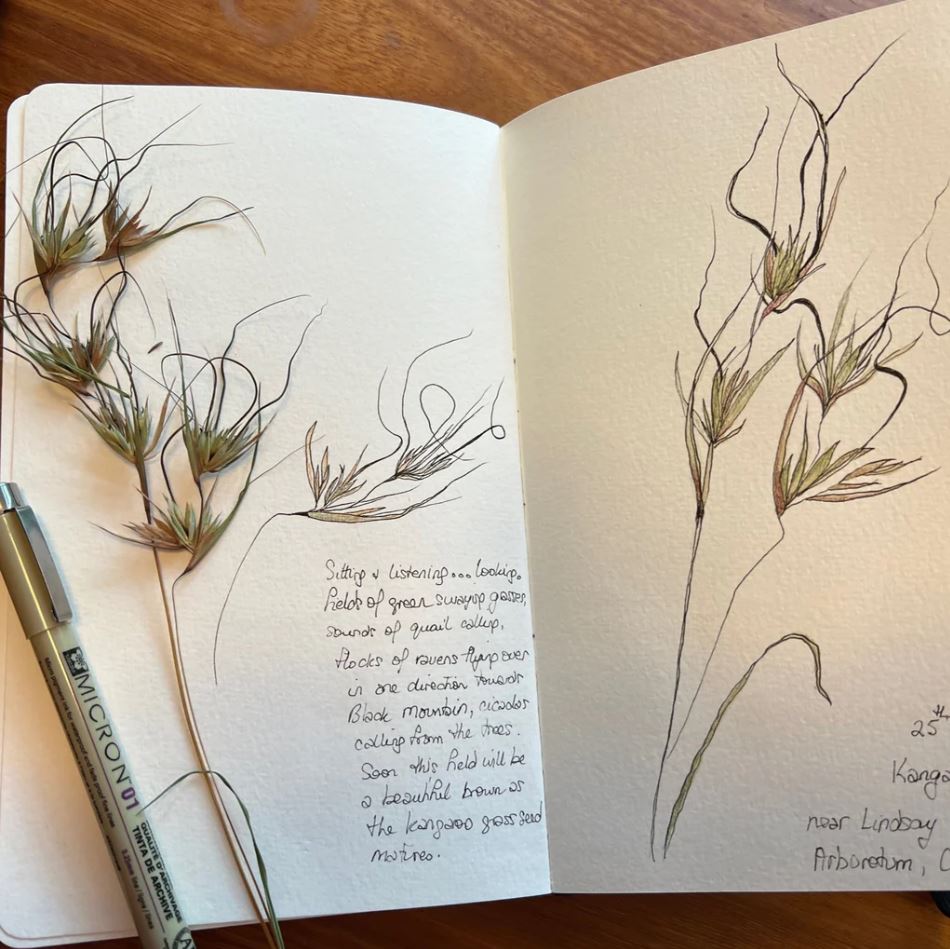 Sitting & listening... looking.
fields of green swaying grasses,
sounds of quail calling,
flocks of ravens flying over
in one direction towards
Black Mountain, cicadas
calling from the trees.
Soon this field will be
a beautiful brown as
the kangaroo grass seed
matures.
25th
Kanga
near Lindsay
Arboretum, C
MICRON 01
QUALITÉ D'ARCHIVAGE
TINTA DE ARCHIVE